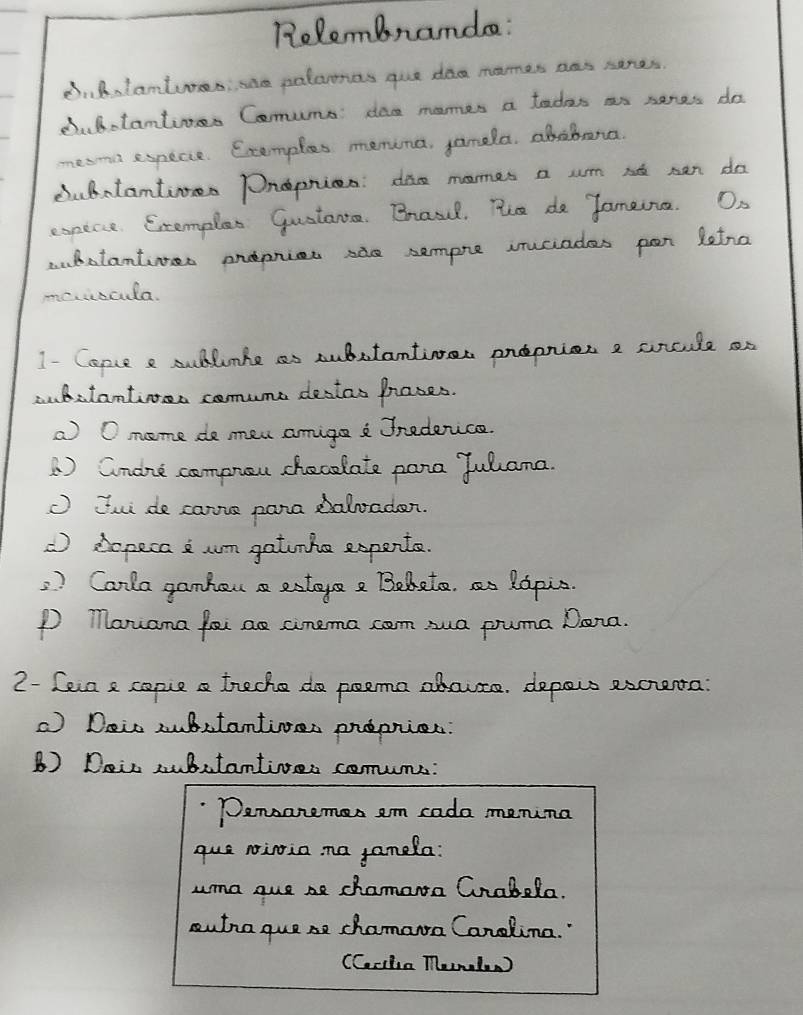 Relembrando:
Substantivos: são palavras que dão nomes aos seres.
Substantivos Comuns: dão nomes a todos os seres da
mesma espécie. Exemplos menina, janela, abóbora.
Substantivos Próprios: dão nomes a um só ser da
espécie. Exemplos Gustavo. Brasil, Rio de Janeiro. Os
substantivos próprios são sempre iniciados por letra
maiúscula.
1- Copie e sublinhe os substantivos próprios e circule os
substantivos comuns destas frases.
a) O nome de meu amigo é Frederico.
b) André comprou chocolate para Juliana.
c) Fui de carro para Salvador.
d) Sapeca é um gatinho esperto.
e) Carla ganhou o estojo e Bebeto, os lápis.
f) Mariana foi ao cinema com sua prima Dora.
2- Leia e copie o trecho do poema abaixo, depois escreva:
a) Dois substantivos próprios:
b) Dois substantivos comuns:
"Pensaremos em cada menina
que vivia na janela:
uma que se chamava Arabela,
outra que se chamava Carolina."
(Cecília Meireles)